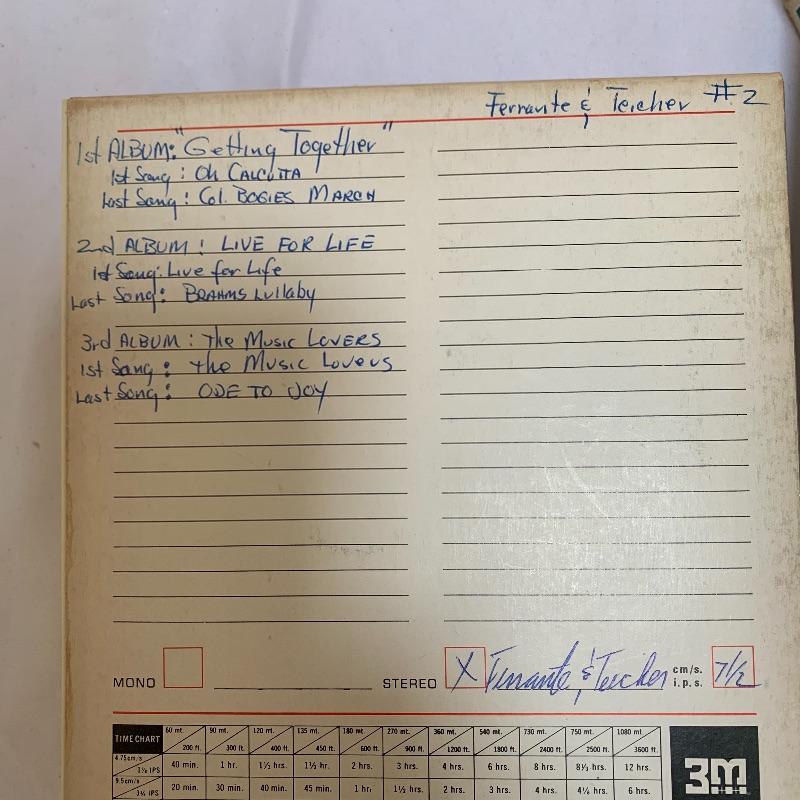 Ferrante & Teicher #2
1st ALBUM: "Getting Together"
1st Song: Oh CALCUTTA
Last Song: Col. BOGIES MARCH
2nd ALBUM: LIVE FOR LIFE
1st Song: Live for Life
Last Song: BRAHMS Lullaby
3rd ALBUM: The Music LOVERS
1st Song: the Music Lovers
Last Song: ODE TO JOY
MONO STEREO X Ferrante & Teicher cm/s. i.p.s. 7 1/2
TIME CHART 60 mt. 200 ft. 90 mt. 300 ft. 120 mt. 400 ft. 135 mt. 450 ft. 180 mt. 600 ft. 270 mt. 900 ft. 360 mt. 1200 ft. 540 mt. 1800 ft. 730 mt. 2400 ft. 750 mt. 2500 ft. 1080 mt. 3600 ft.
4.75cm/s 1⅞ IPS 40 min. 1 hr. 1⅓ hrs. 1½ hr. 2 hrs. 3 hrs. 4 hrs. 6 hrs. 8 hrs. 8⅓ hrs. 12 hrs.
9.5cm/s 3¾ IPS 20 min. 30 min. 40 min. 45 min. 1 hr. 1½ hrs. 2 hrs. 3 hrs. 4 hrs. 4¼ hrs. 6 hrs.
3M